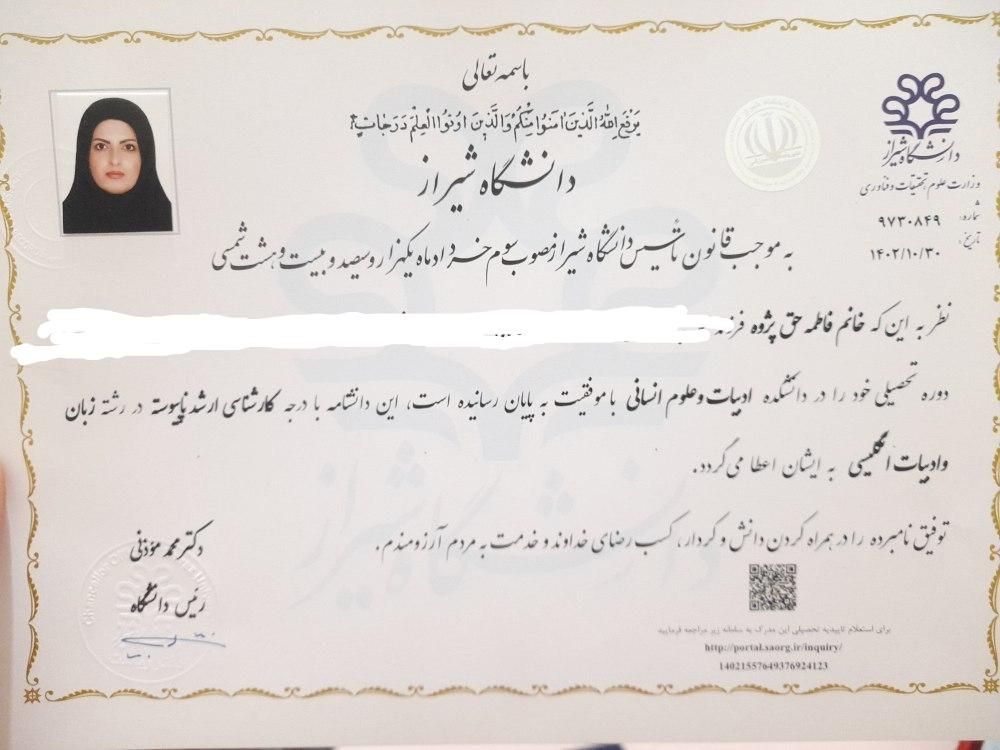 باسمه تعالی
یَرْفَعِ اللهُ الَّذینَ امَنُوا مِنْکُمْ وَالَّذینَ اُوتُوا الْعِلْمَ دَرَجاتٍ
دانشگاه شیراز
دانشگاه شیراز
وزارت علوم، تحقیقات و فناوری
شماره: ۹۷۳۰۸۴۹
تاریخ: ۱۴۰۲/۱۰/۳۰
به موجب قانون تأسیس دانشگاه شیراز مصوب سوم خرداد ماه یکهزار و سیصد و بیست و هشت شمسی
نظر به این که خانم فاطمه حق پژوه فرزند
دوره تحصیلی خود را در دانشکده ادبیات و علوم انسانی با موفقیت به پایان رسانیده است، این دانشنامه با درجه کارشناسی ارشد ناپیوسته در رشته زبان
و ادبیات انگلیسی به ایشان اعطا می گردد.
توفیق نامبرده را در همراه کردن دانش و کردار، کسب رضای خداوند و خدمت به مردم آرزومندم.
دکتر محمد مؤذنی
رئیس دانشگاه
برای استعلام تاییدیه تحصیلی این مدرک به سامانه زیر مراجعه فرمایید
http://portal.saorg.ir/inquiry/
14021557649376924123